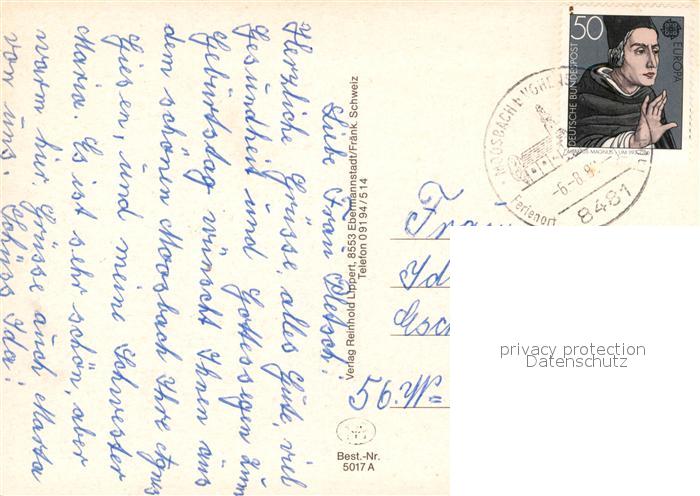 Liebe Frau Pletsch!
Herzliche Grüsse, alles Gute, viel
Gesundheit und Gottessegen zum
Geburtstag wünscht Ihnen aus
dem schönen Moosbach Ihre Agnes
Giesen, und meine Schwester
Maria. Es ist sehr schön, aber
warm hir. Grüsse auch Marta
von uns. Tschüss Ida!
Verlag Reinhold Lippert, 8553 Ebermannstadt/Fränk. Schweiz
Telefon 09194/514
50
DEUTSCHE BUNDESPOST
EUROPA
ALBERTUS MAGNUS UM 1193-1280
MOOSBACH b VOHE
-6-8.8
8481
Ferienort
Frau
Id
Gsch
56. W=
privacy protection
Datenschutz
Best.-Nr.
5017 A